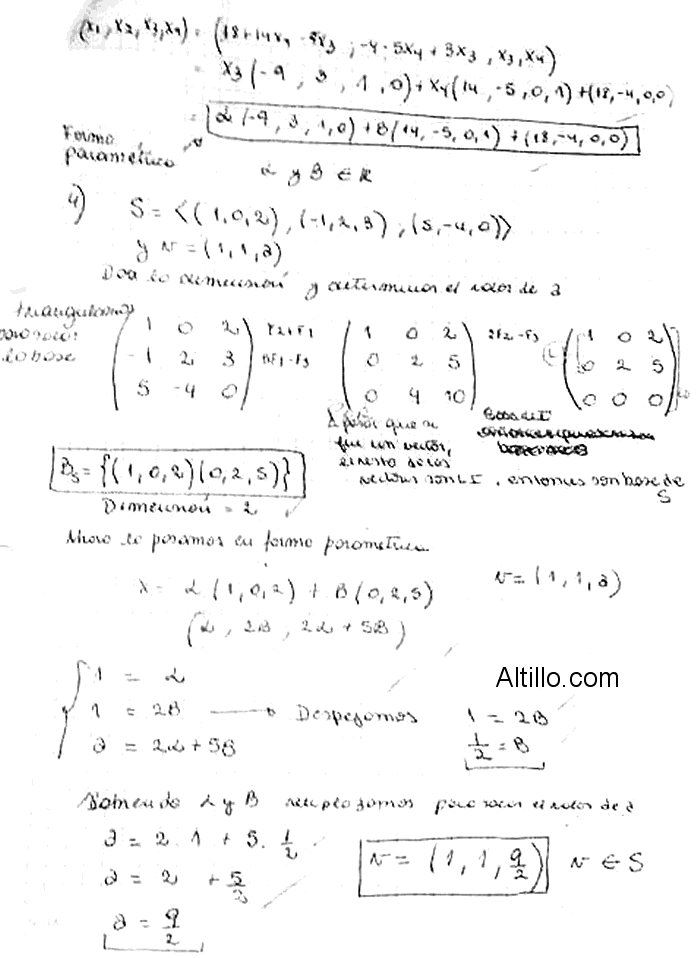 (x₁, x₂, x₃, x₄) = (18+14x₄ -9x₃, -4-5x₄+3x₃, x₃, x₄)
= x₃(-9, 3, 1, 0) + x₄(14, -5, 0, 1) + (18, -4, 0, 0)
Forma parametrica → = α(-9, 3, 1, 0) + β(14, -5, 0, 1) + (18, -4, 0, 0)
α y β ∈ R
4) S = <(1, 0, 2), (-1, 2, 3), (5, -4, 0)>
y v = (1, 1, a)
Dar la dimension y determinar el valor de a
triangulamos para sacar la base
( 1 0 2 ) F2+F1 ( 1 0 2 ) 2F2-F3 ( 1 0 2 )
( -1 2 3 ) 5F1-F3 ( 0 2 5 ) ( 0 2 5 )
( 5 -4 0 ) ( 0 4 10 ) ( 0 0 0 )
A pesar que se fue un vector, el resto de los vectores son LI, entonces son base de S
B_S = {(1, 0, 2)(0, 2, 5)}
Dimension = 2
Ahora lo pasamos en forma parametrica
x = α(1, 0, 2) + β(0, 2, 5) v = (1, 1, a)
(α, 2β, 2α + 5β)
1 = α
1 = 2β → Despejamos 1 = 2β
a = 2α + 5β 1/2 = β
α y β reemplazamos para sacar el valor de a
a = 2 . 1 + 5 . 1/2
a = 2 + 5/2
a = 9/2
v = (1, 1, 9/2) v ∈ S
Altillo.com